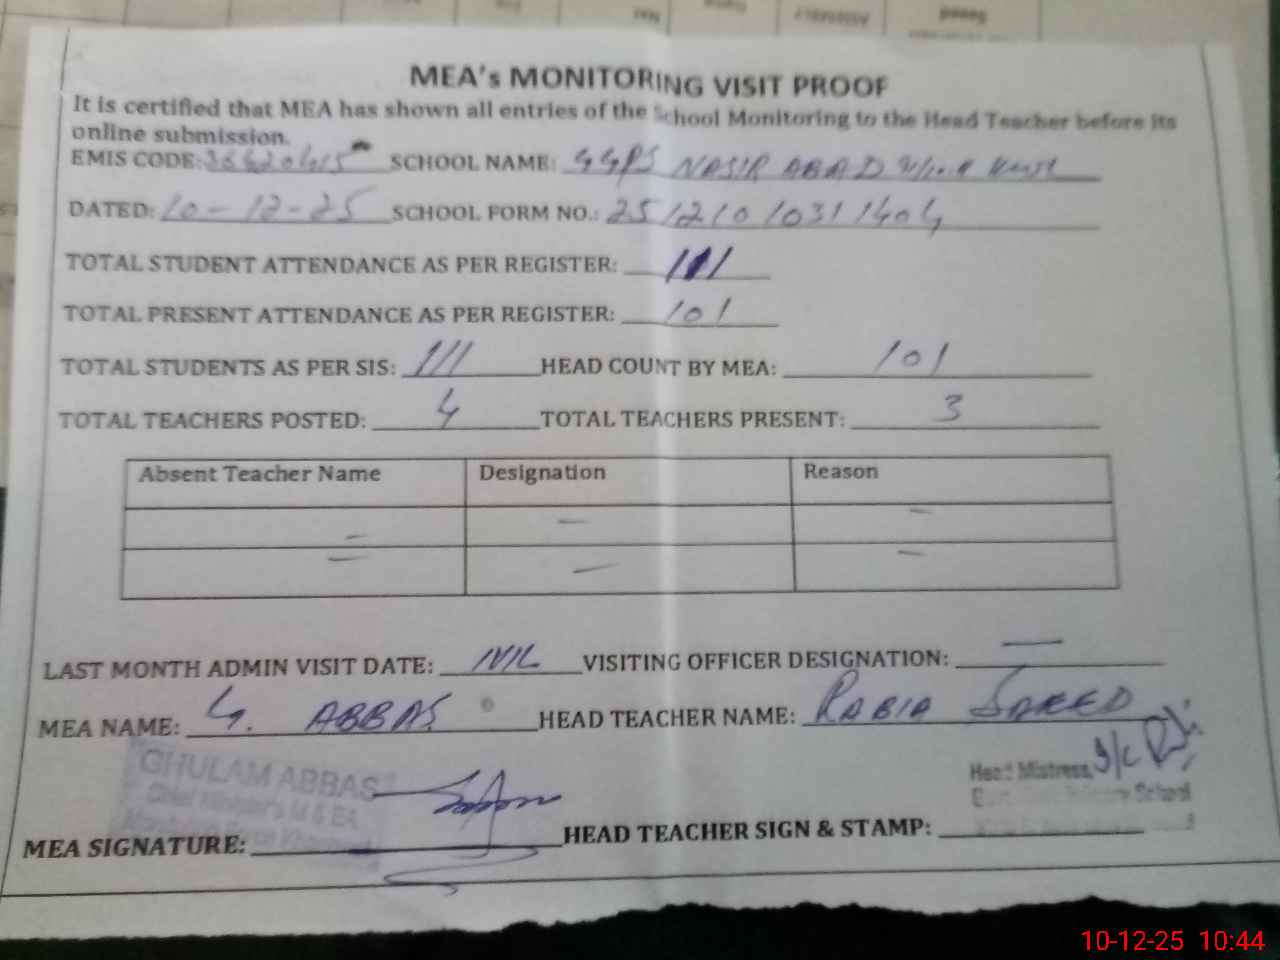 MEA's MONITORING VISIT PROOF
It is certified that MEA has shown all entries of the School Monitoring to the Head Teacher before its
online submission.
EMIS CODE: SCHOOL NAME: GGPS NASIR ABAD
DATED: 10-12-25 SCHOOL FORM NO.: 2512101031404
TOTAL STUDENT ATTENDANCE AS PER REGISTER: 111
TOTAL PRESENT ATTENDANCE AS PER REGISTER: 101
TOTAL STUDENTS AS PER SIS: 111 HEAD COUNT BY MEA: 101
TOTAL TEACHERS POSTED: 4 TOTAL TEACHERS PRESENT: 3
Absent Teacher Name Designation Reason
— — —
— — —
LAST MONTH ADMIN VISIT DATE: NIL VISITING OFFICER DESIGNATION: —
MEA NAME: G. ABBAS HEAD TEACHER NAME: RABIA SAEED
GHULAM ABBAS
Head Mistress I/C
School
MEA SIGNATURE: HEAD TEACHER SIGN & STAMP:
10-12-25 10:44